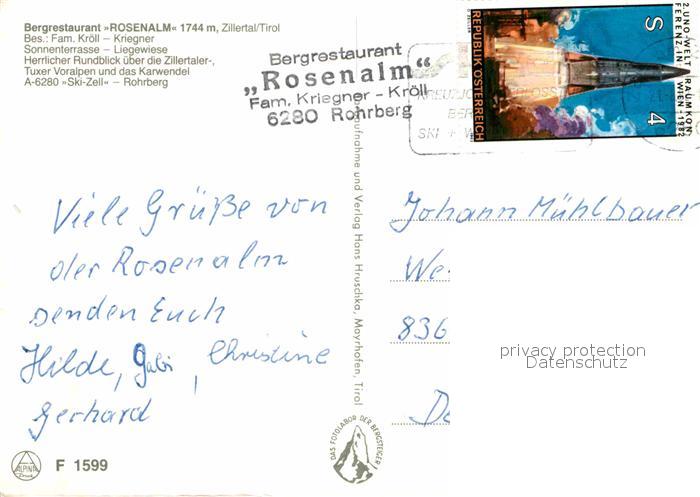 Bergrestaurant »ROSENALM« 1744 m, Zillertal/Tirol
Bes.: Fam. Kröll – Kriegner
Sonnenterrasse – Liegewiese
Herrlicher Rundblick über die Zillertaler-,
Tuxer Voralpen und das Karwendel
A-6280 »Ski-Zell« – Rohrberg
Bergrestaurant
„Rosenalm“
Fam. Kriegner - Kröll
6280 Rohrberg
2. UNO-WELTRAUMKON-
FERENZ IN WIEN - 1982
S 4
REPUBLIK ÖSTERREICH
SKI + W
Viele Grüße von
der Rosenalm
senden Euch
Hilde, Gabi, Christine
Gerhard
Aufnahme und Verlag Hans Hruschka, Mayrhofen, Tirol
Johann Mühlbauer
We
836
privacy protection
Datenschutz
DAS FOTOLABOR DER BERGSTEIGER
ALPINA
F 1599